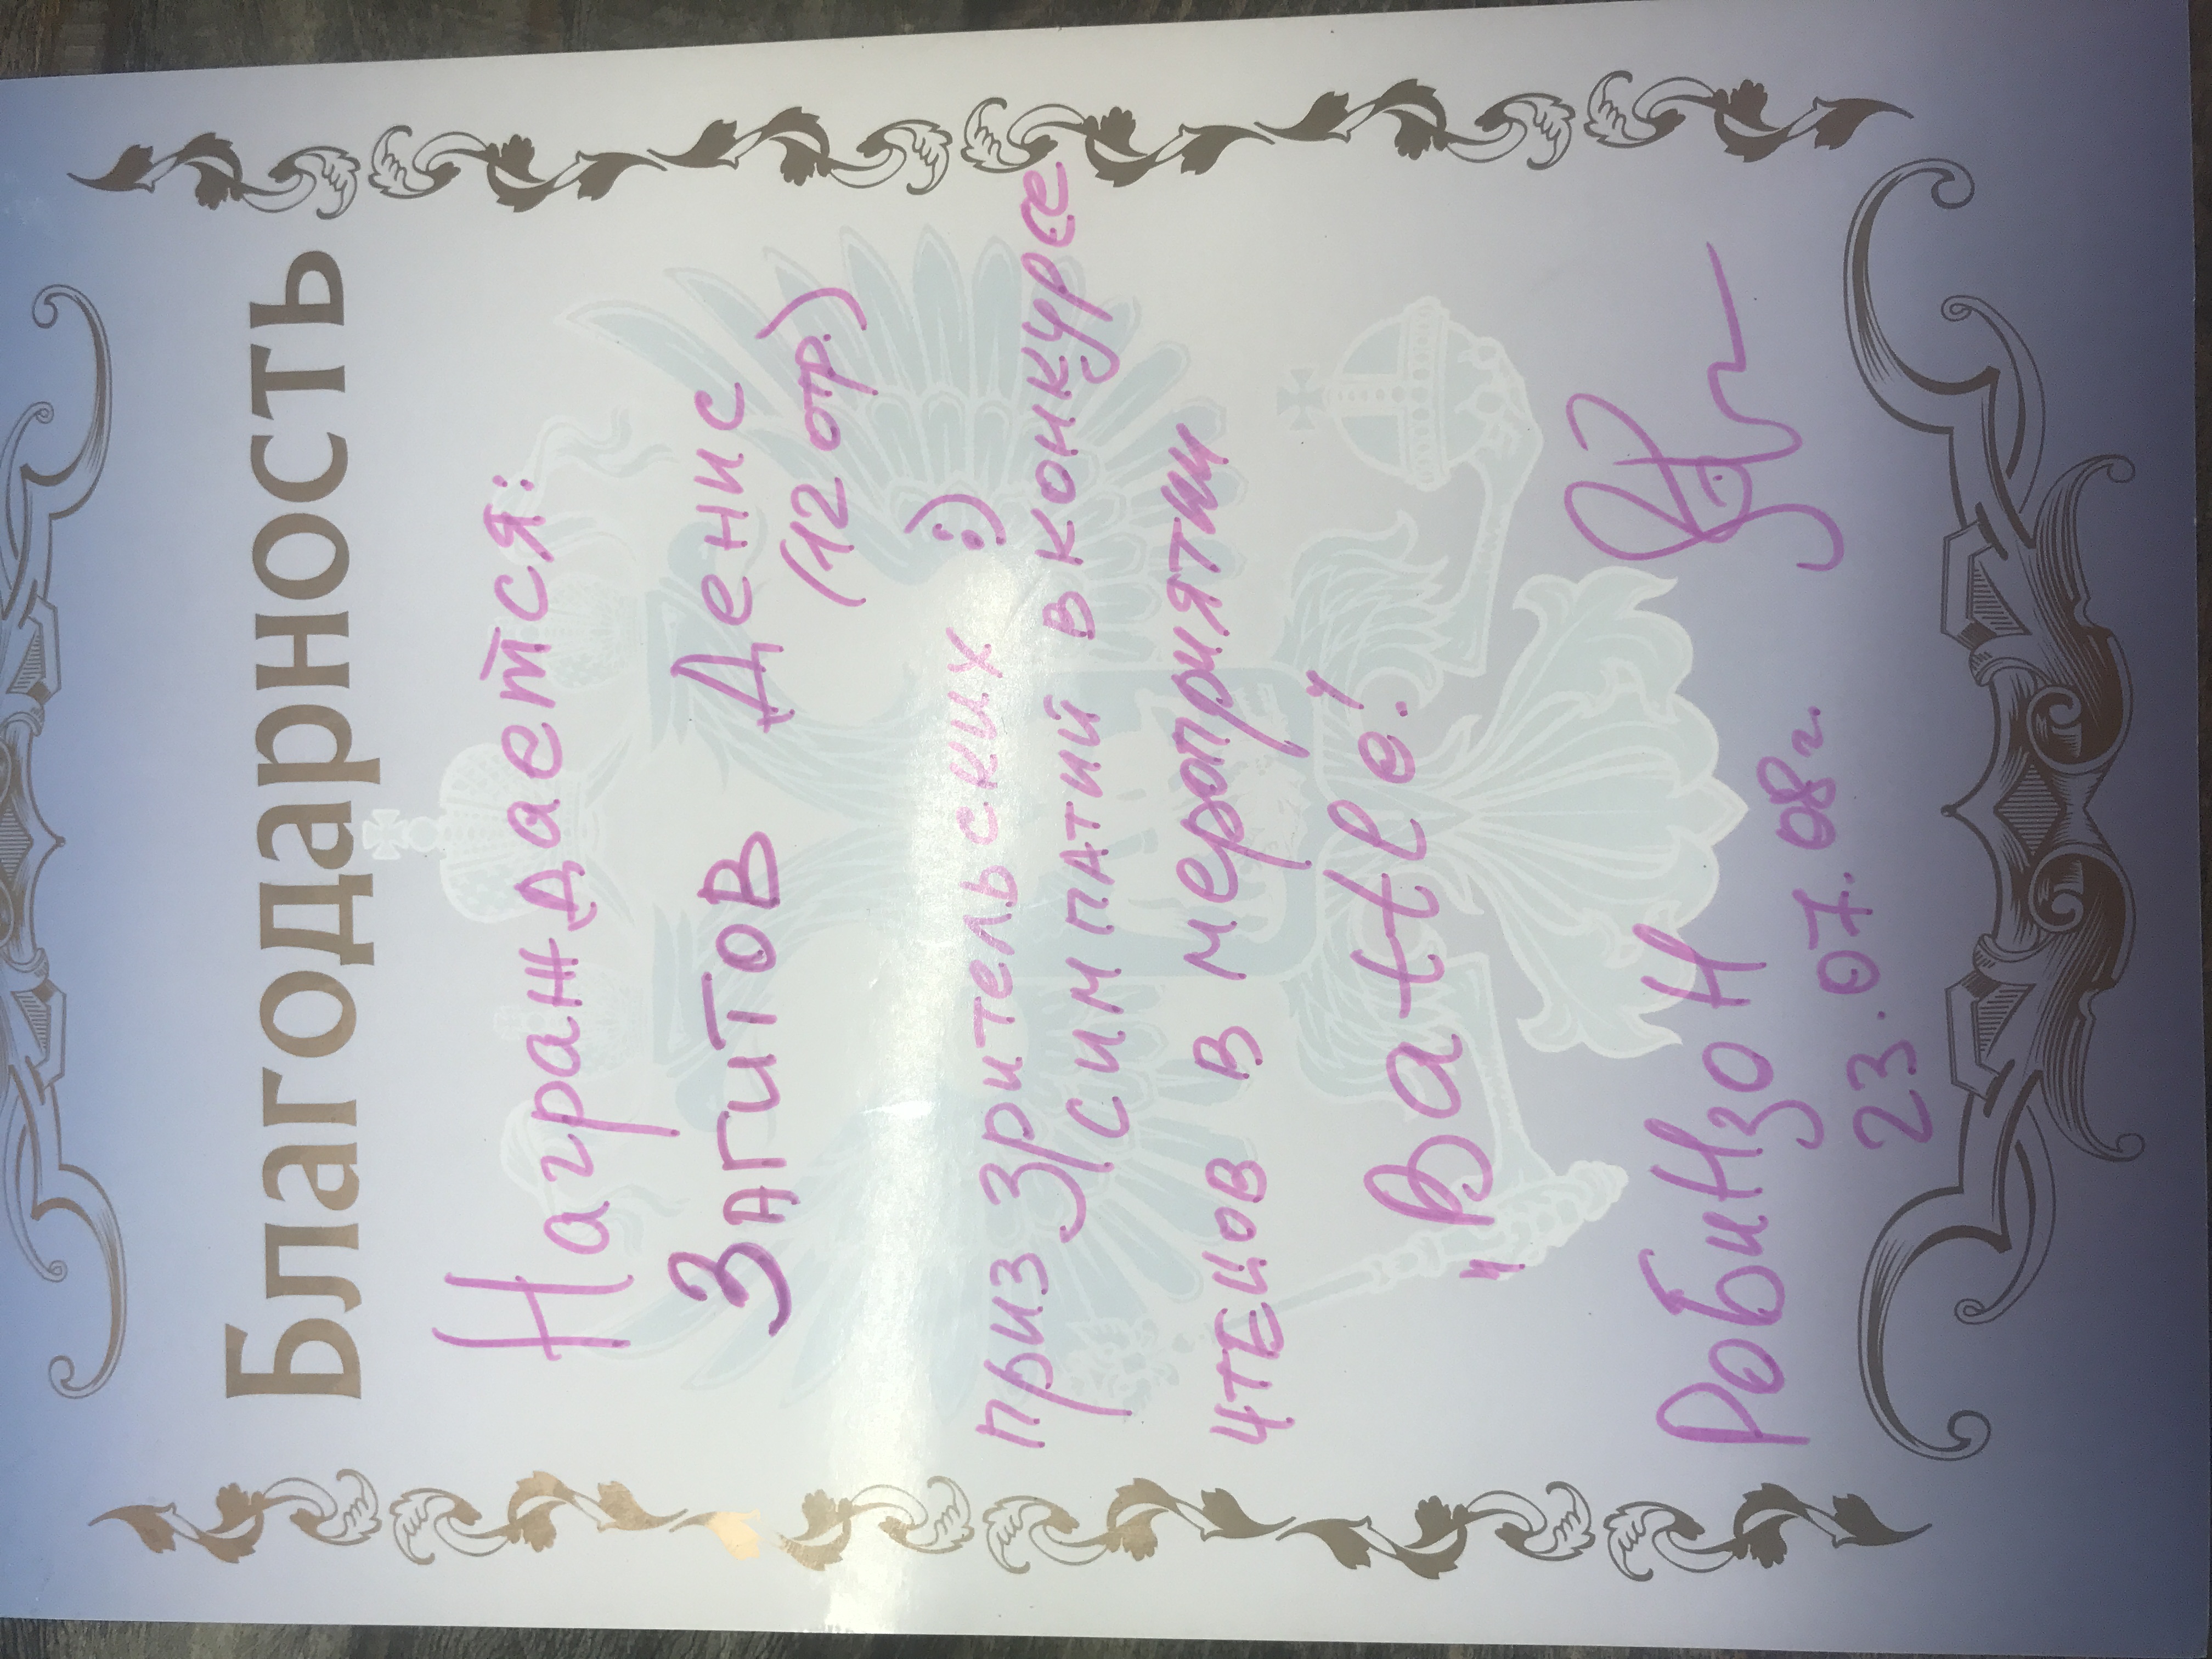 Благодарность
Награждается:
Загитов Денис
(12 отр.)
приз зрительских :)
симпатий в конкурсе
чтецов в мероприятии
„Battle!"
Робинзон
23.07.08г.